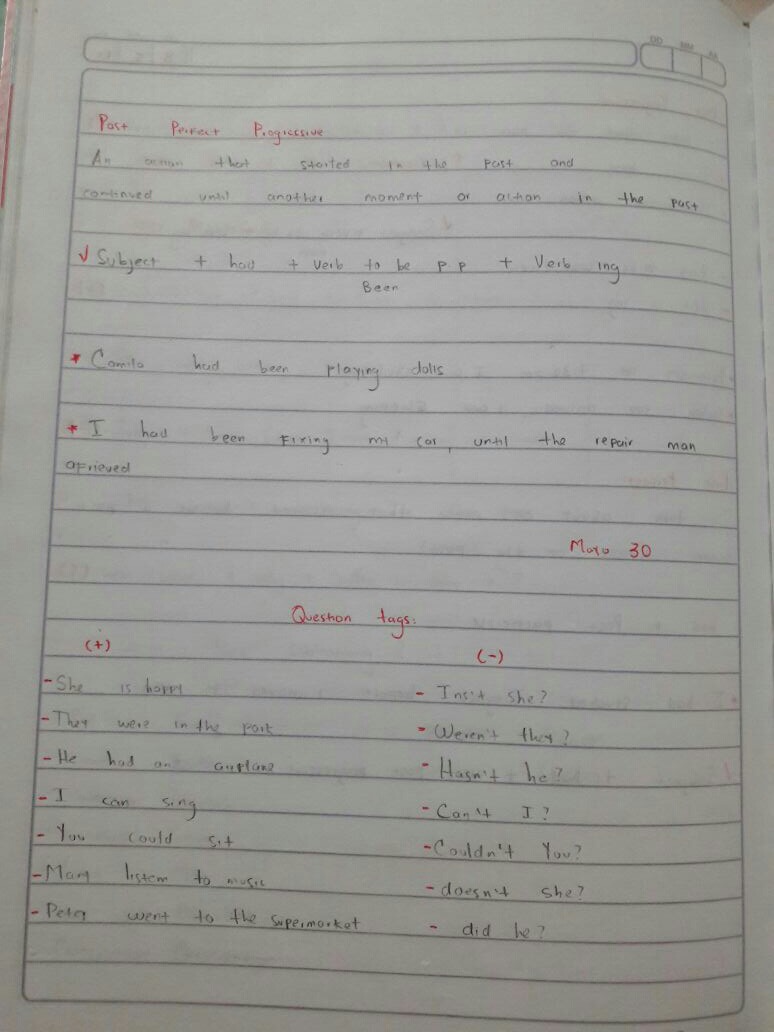 DD MM AA
Past Perfect Progressive
An action that started in the past and
continued until another moment or action in the past
√ Subject + had + Verb to be p.p + Verb ing
Been
* Camila had been playing dolls
* I had been Fixing my car, until the repair man
afrieved
Mayo 30
Question tags:
(+) (-)
- She is happy - Insi't she?
- They were in the park - Weren't they?
- He had an airplane - Hasn't he?
- I can sing - Can't I?
- You could sit - Couldn't You?
- Mary listem to music - doesn't she?
- Peter went to the supermarket - did he?